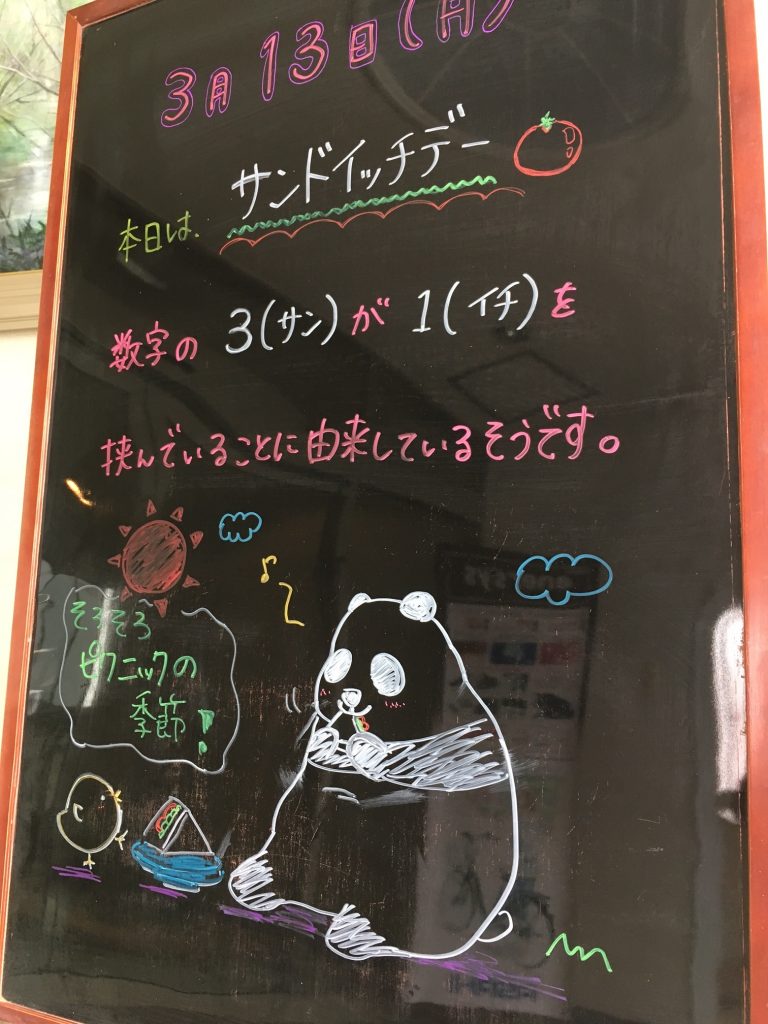 3月13日(月)
本日は、サンドイッチデー
数字の 3(サン)が 1(イチ)を
挟んでいることに由来しているそうです。
そろそろ
ピクニックの
季節!